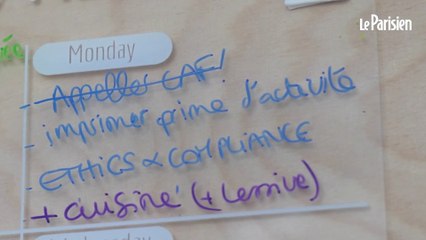 Le Parisien
Monday
- Appeller CAF!
- imprimer prime d'activité
- ETHICS & COMPLIANCE
+ cuisine (+ lessive)